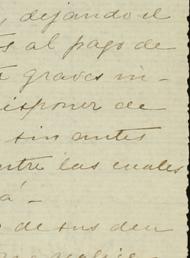 , dejando el
s al pago de
graves in-
isponer de
sin antes
ntre las cuales
á-
de sus deu